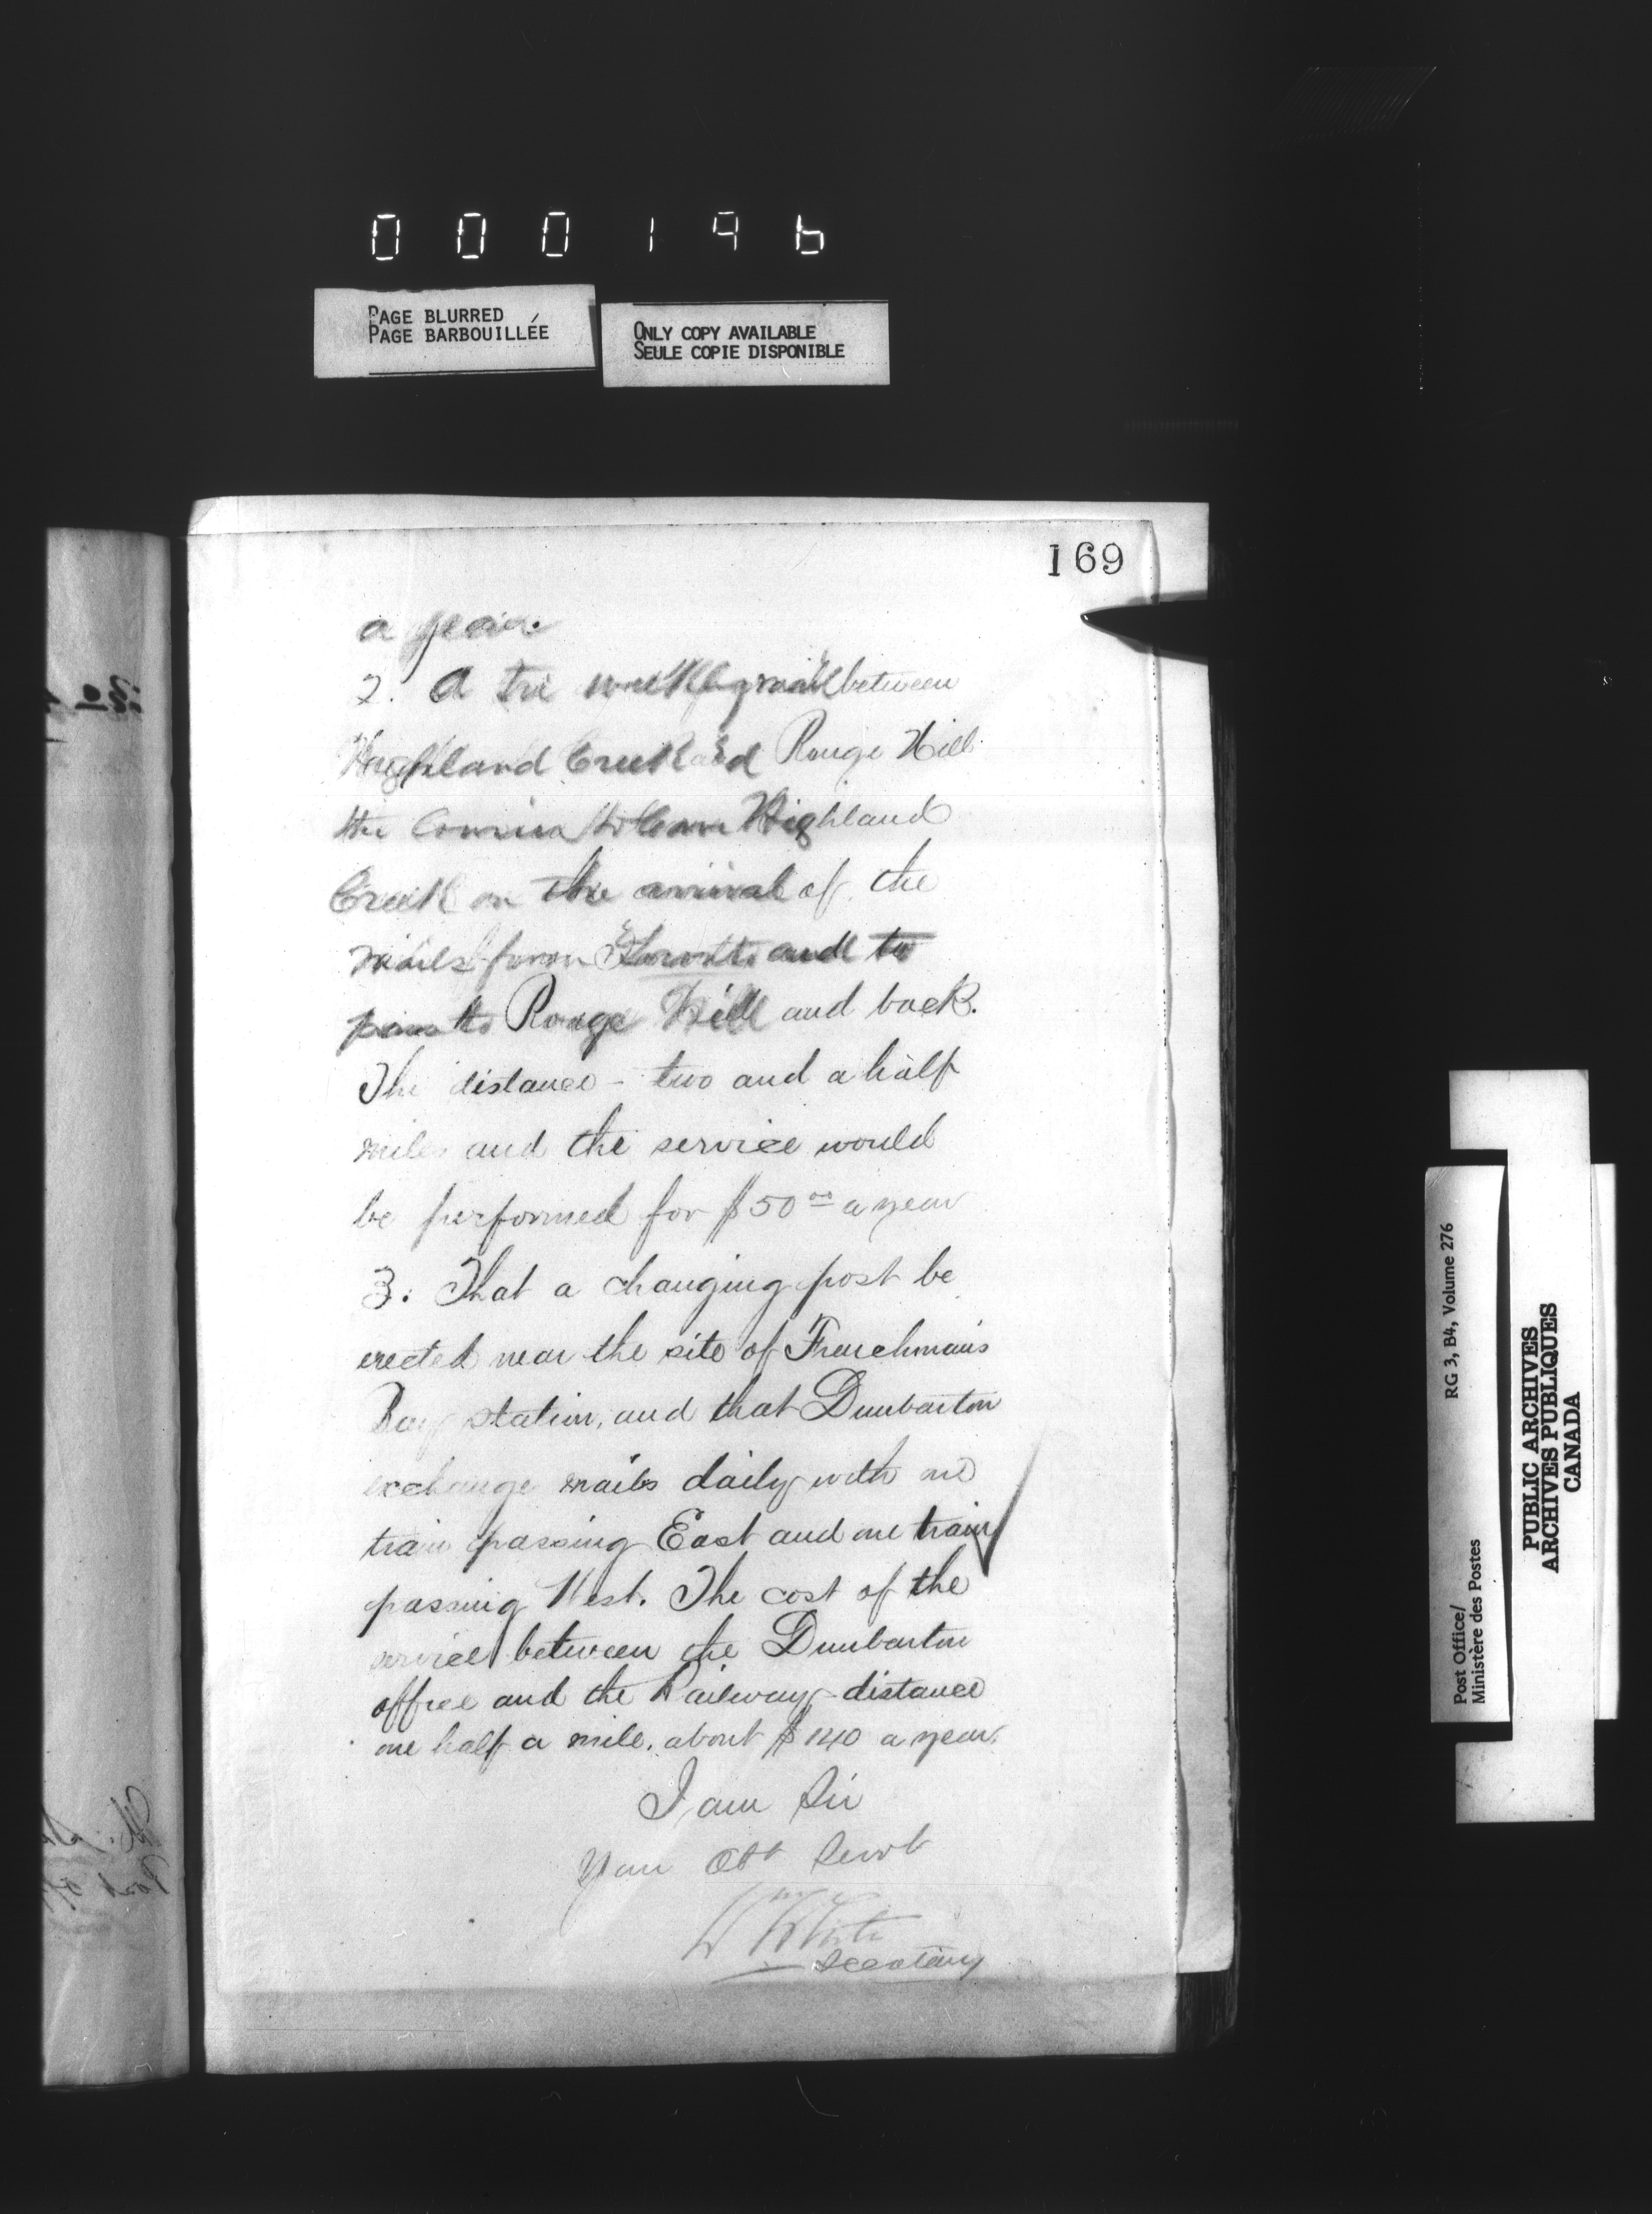 000196
PAGE BLURRED
PAGE BARBOUILLÉE
ONLY COPY AVAILABLE
SEULE COPIE DISPONIBLE
169
a year.
2. A tri weekly mail between
Highland Creek and Rouge Hill
the Courier to leave Highland
Creek on the arrival of the
mails from Toronto and to
pass to Rouge Hill and back.
The distance - two and a half
miles and the service would
be performed for $50 00 a year
3. That a changing post be
erected near the site of Frenchman's
Bay station, and that Dunbarton
exchange mails daily with one
train passing East and one train
passing West. The cost of the
service between the Dunbarton
office and the Railway - distance
one half a mile. about $140 a year.
I am Sir
Your Obt Servt
Wm White
Secretary
RG 3, B4, Volume 276
Post Office/
Ministère des Postes
PUBLIC ARCHIVES
ARCHIVES PUBLIQUES
CANADA